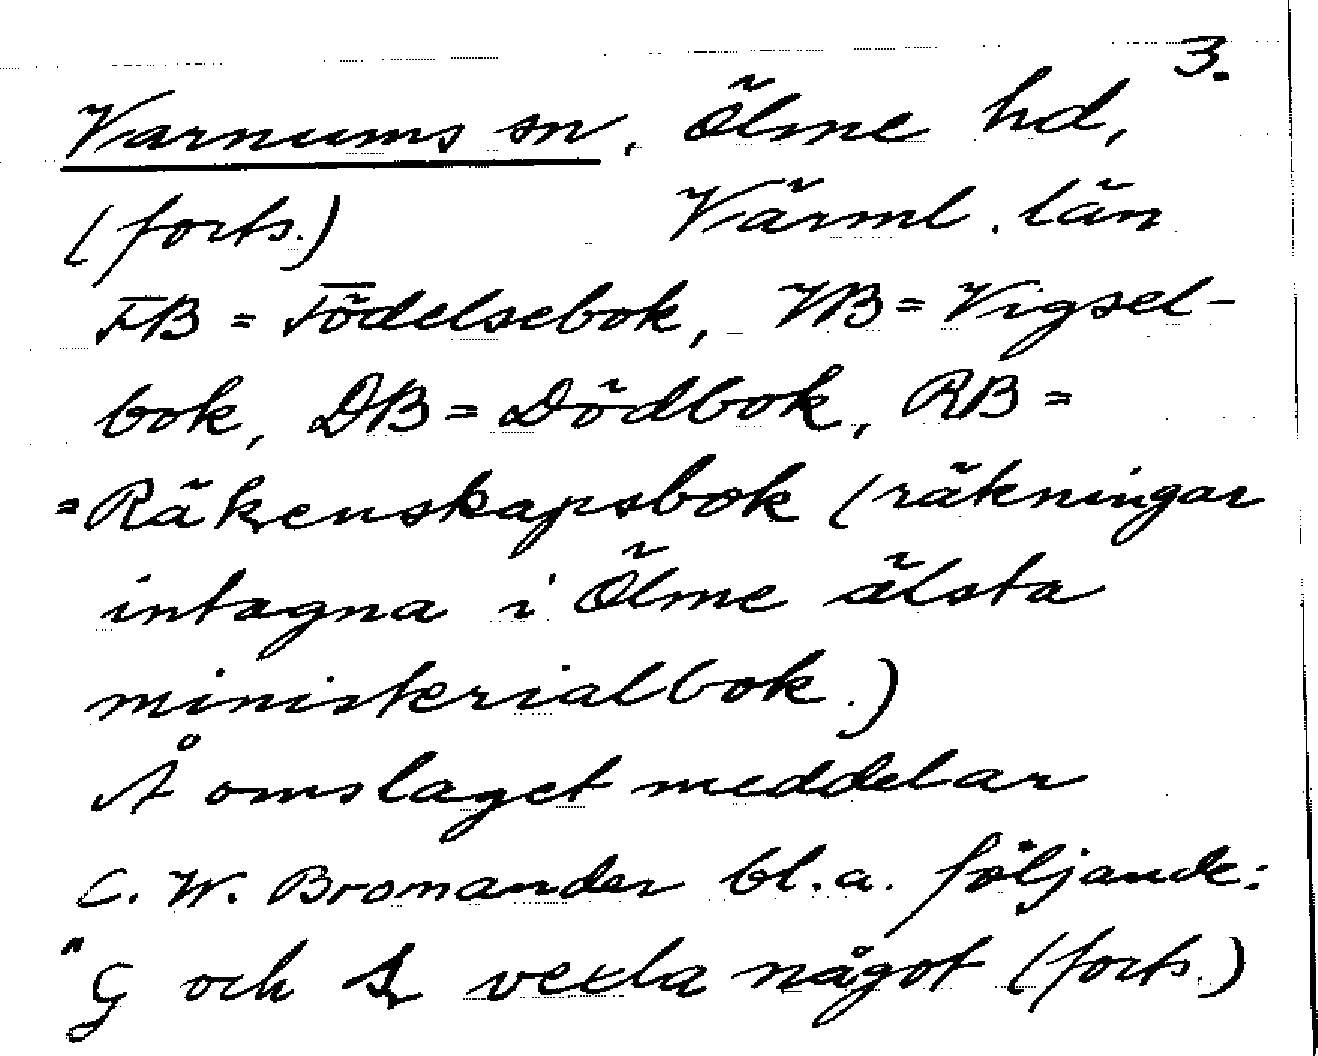 3.
Varnums sn, Ölme hd,
(forts.) Värml. län
FB = Födelsebok, VB = Vigsel-
bok, DB = Dödbok, RB =
= Räkenskapsbok (räkningar
intagna i Ölme älsta
ministerialbok.)
Å omslaget meddelar
C. W. Bromander bl.a. följande:
"G och vexla något (forts.)